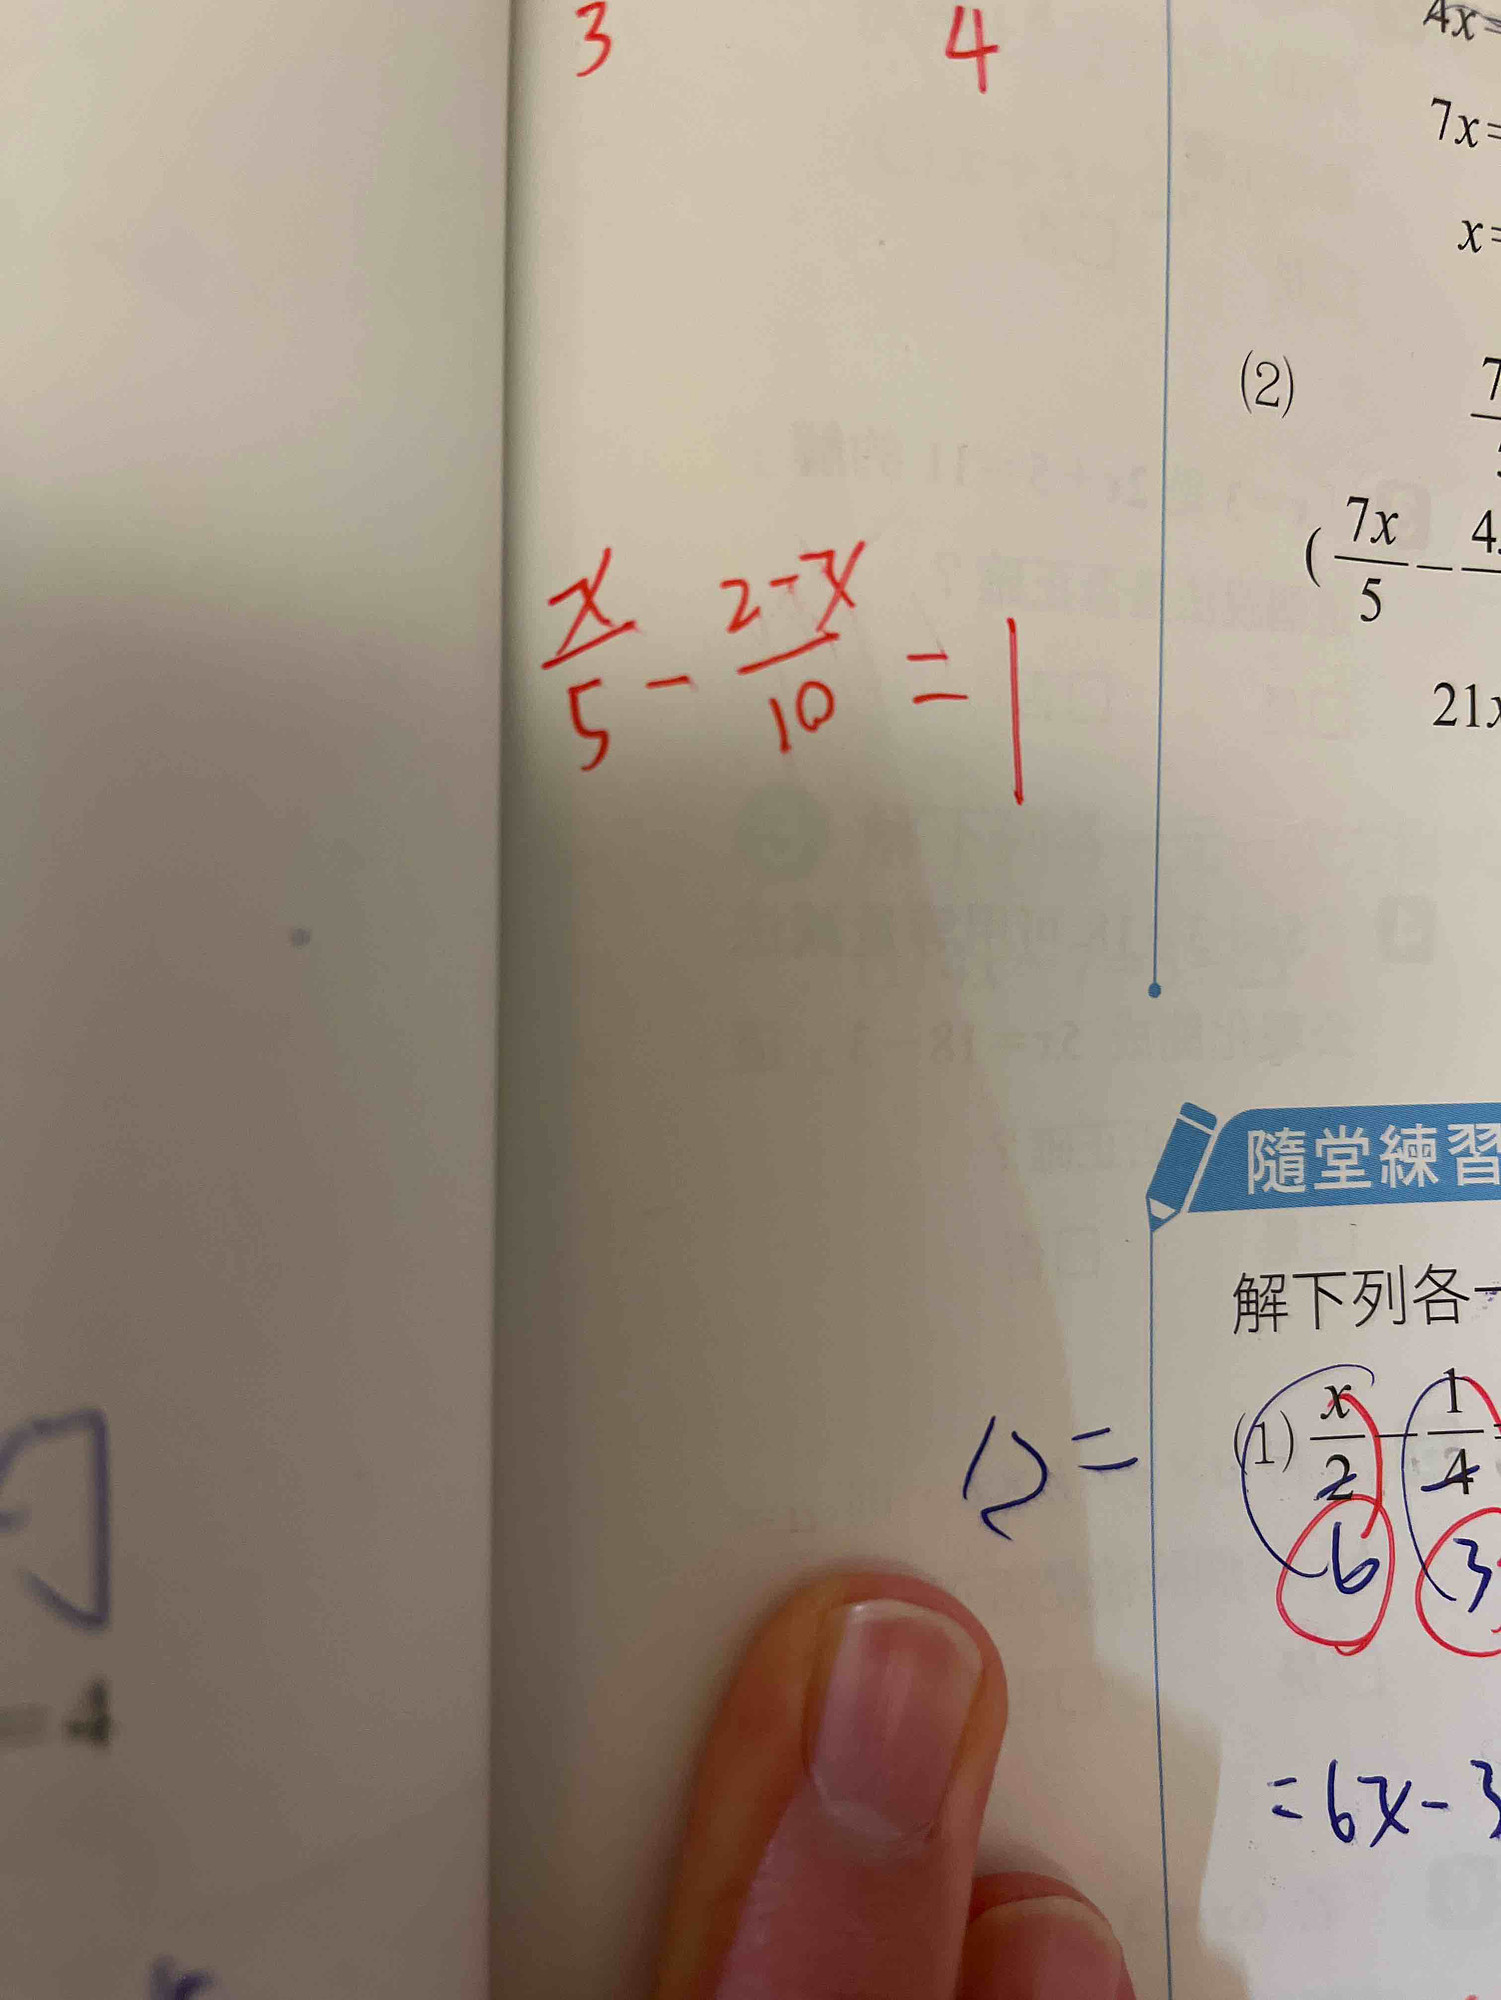 3 4
4x=
7x=
x=
(2) 7
(7x/5 - 4
x/5 - 2-x/10 = 1
21x
隨堂練習
解下列各一
12 = (1) x/2 - 1/4 =
6 3
= 6x - 3